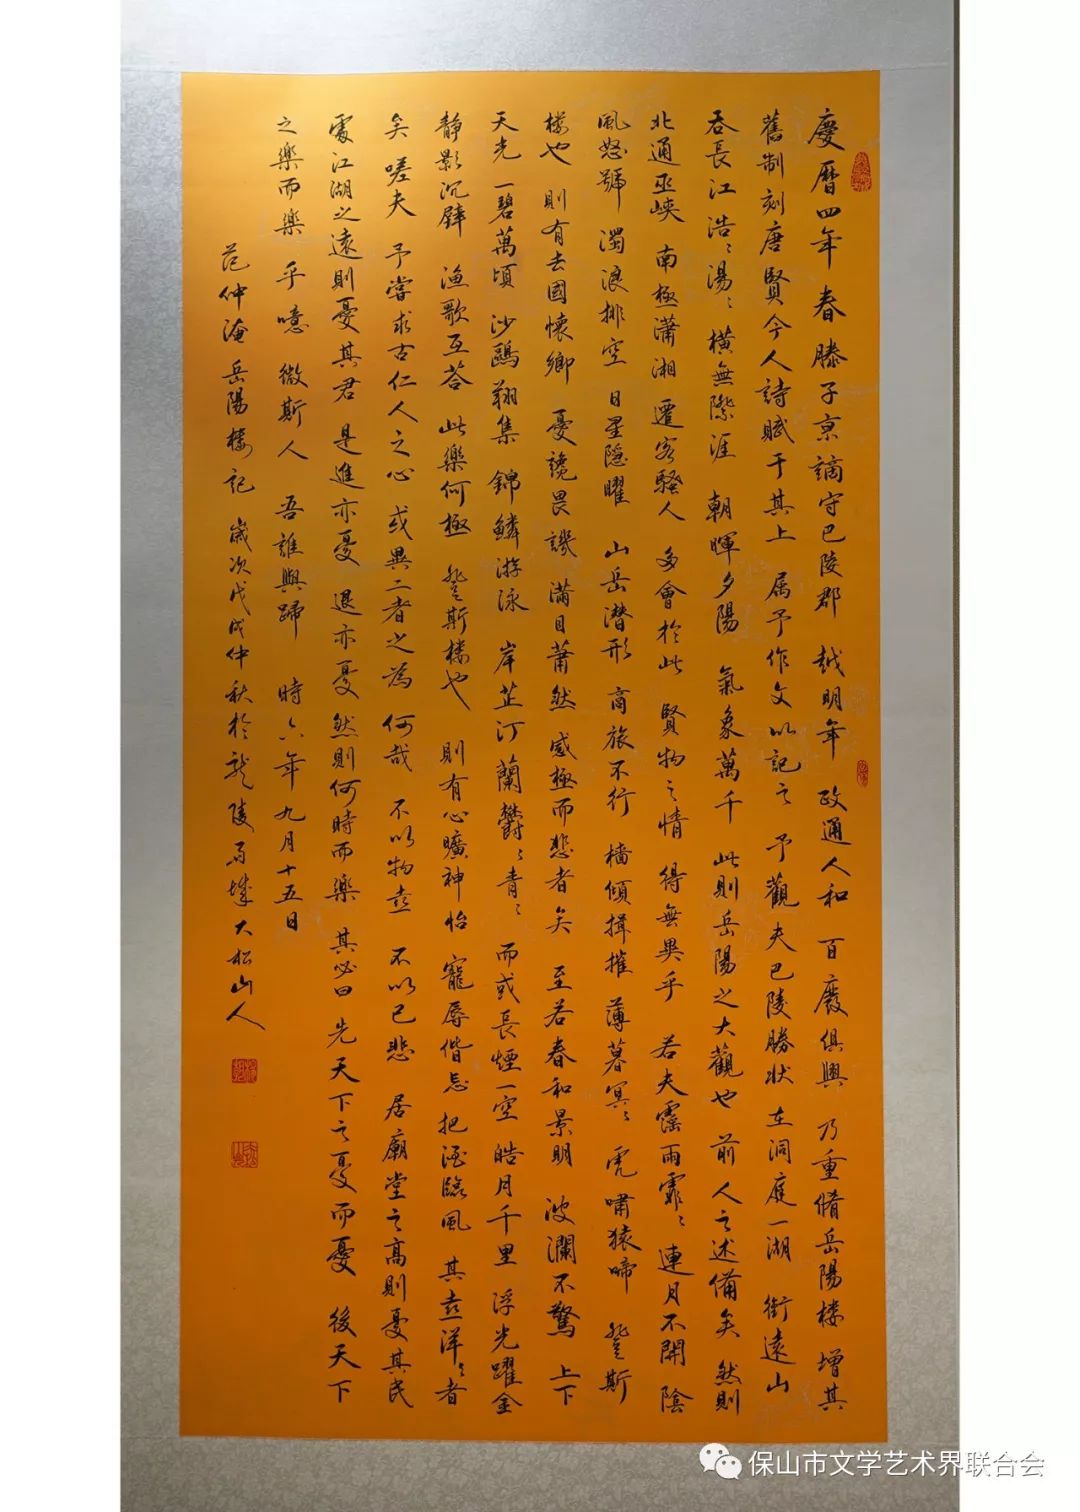 慶曆四年春滕子京謫守巴陵郡越明年政通人和百廢俱興乃重脩岳陽樓增其
舊制刻唐賢今人詩賦于其上属予作文以記之予觀夫巴陵勝状在洞庭一湖銜遠山
吞長江浩〻湯〻橫無際涯朝暉夕陽氣象萬千此則岳陽之大觀也前人之述備矣然則
北通巫峽南極瀟湘遷客騷人多會於此賢物之情得無異乎若夫霪雨霏〻連月不開陰
風怒號濁浪排空日星隱曜山岳潛形商旅不行檣傾揖摧薄暮冥〻虎嘯猿啼登斯
楼也則有去國懷鄉憂讒畏譏滿目蕭然感極而悲者矣至若春和景明波瀾不驚上下
天光一碧萬頃沙鷗翔集錦鱗游泳岸芷汀蘭欝〻青〻而或長煙一空皓月千里浮光躍金
靜影沉璧渔歌互荅此樂何極登斯楼也則有心曠神怡寵辱偕忘把酒臨風其喜洋〻者
矣嗟夫予嘗求古仁人之心或異二者之为何哉不以物喜不以己悲居廟堂之高則憂其民
處江湖之遠則憂其君是進亦憂退亦憂然則何時而樂其必曰先天下之憂而憂後天下
之樂而樂乎噫微斯人吾誰與歸時六年九月十五日
范仲淹岳陽楼記歲次戊戌仲秋於龍陵大松山人
保山市文学艺术界联合会